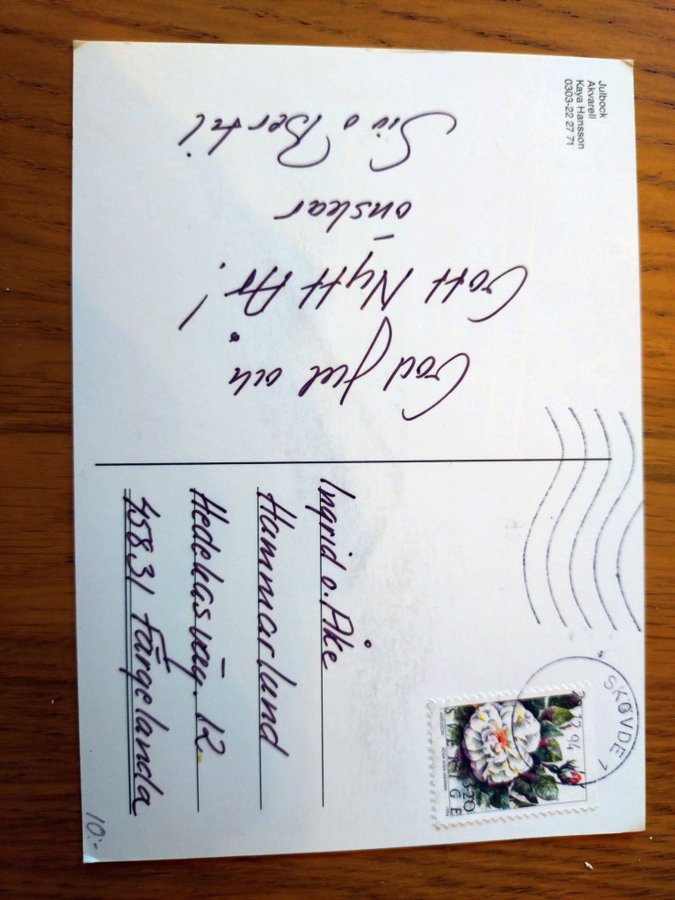 Julbock
Akvarell
Kaya Hansson
0303-22 27 71
God Jul och
Gott Nytt År!
önskar
Siv o Bertil
Ingrid o. Åke
Hammarlund
Hedekasväg. 12
458 31 Färgelanda
SKÖVDE 1
12 94
SVERIGE
3.20
10:-